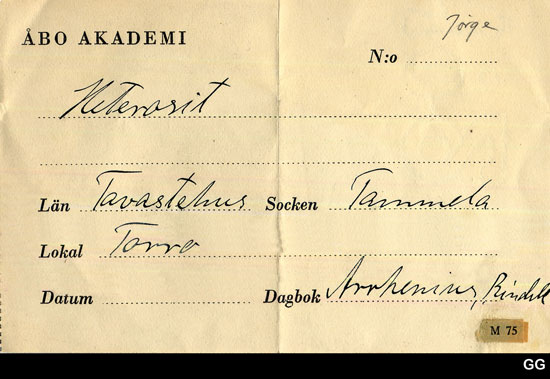 Jörge
ÅBO AKADEMI
N:o
Heterosit
Län Tavastehus Socken Tammela
Lokal Torro
Datum Dagbok Arrhenius, Rindell
M 75
GG